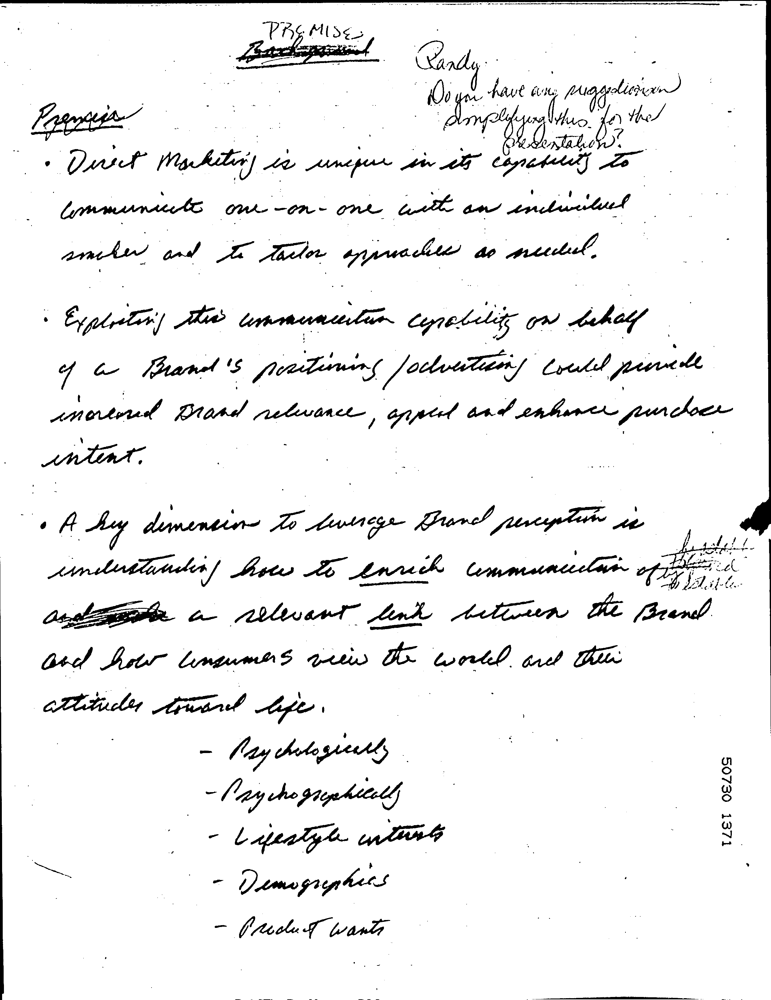 PREMISE
Background
Randy
Do you have any suggestions on
simplifying this for the
presentation?
Premise
· Direct Marketing is unique in its capability to
communicate one-on-one with an individual
smoker and to tailor approaches as needed.
· Exploiting this communication capability on behalf
of a Brand's positioning/advertising could provide
increased Brand relevance, appeal and enhance purchase
intent.
· A key dimension to leverage Brand perception is
understanding how to enrich communication of
and a relevant link between the Brand
and how consumers view the world and their
attitudes toward life.
- Psychologically
- Psychographically
- Lifestyle interests
- Demographics
- Product wants
50730 1371